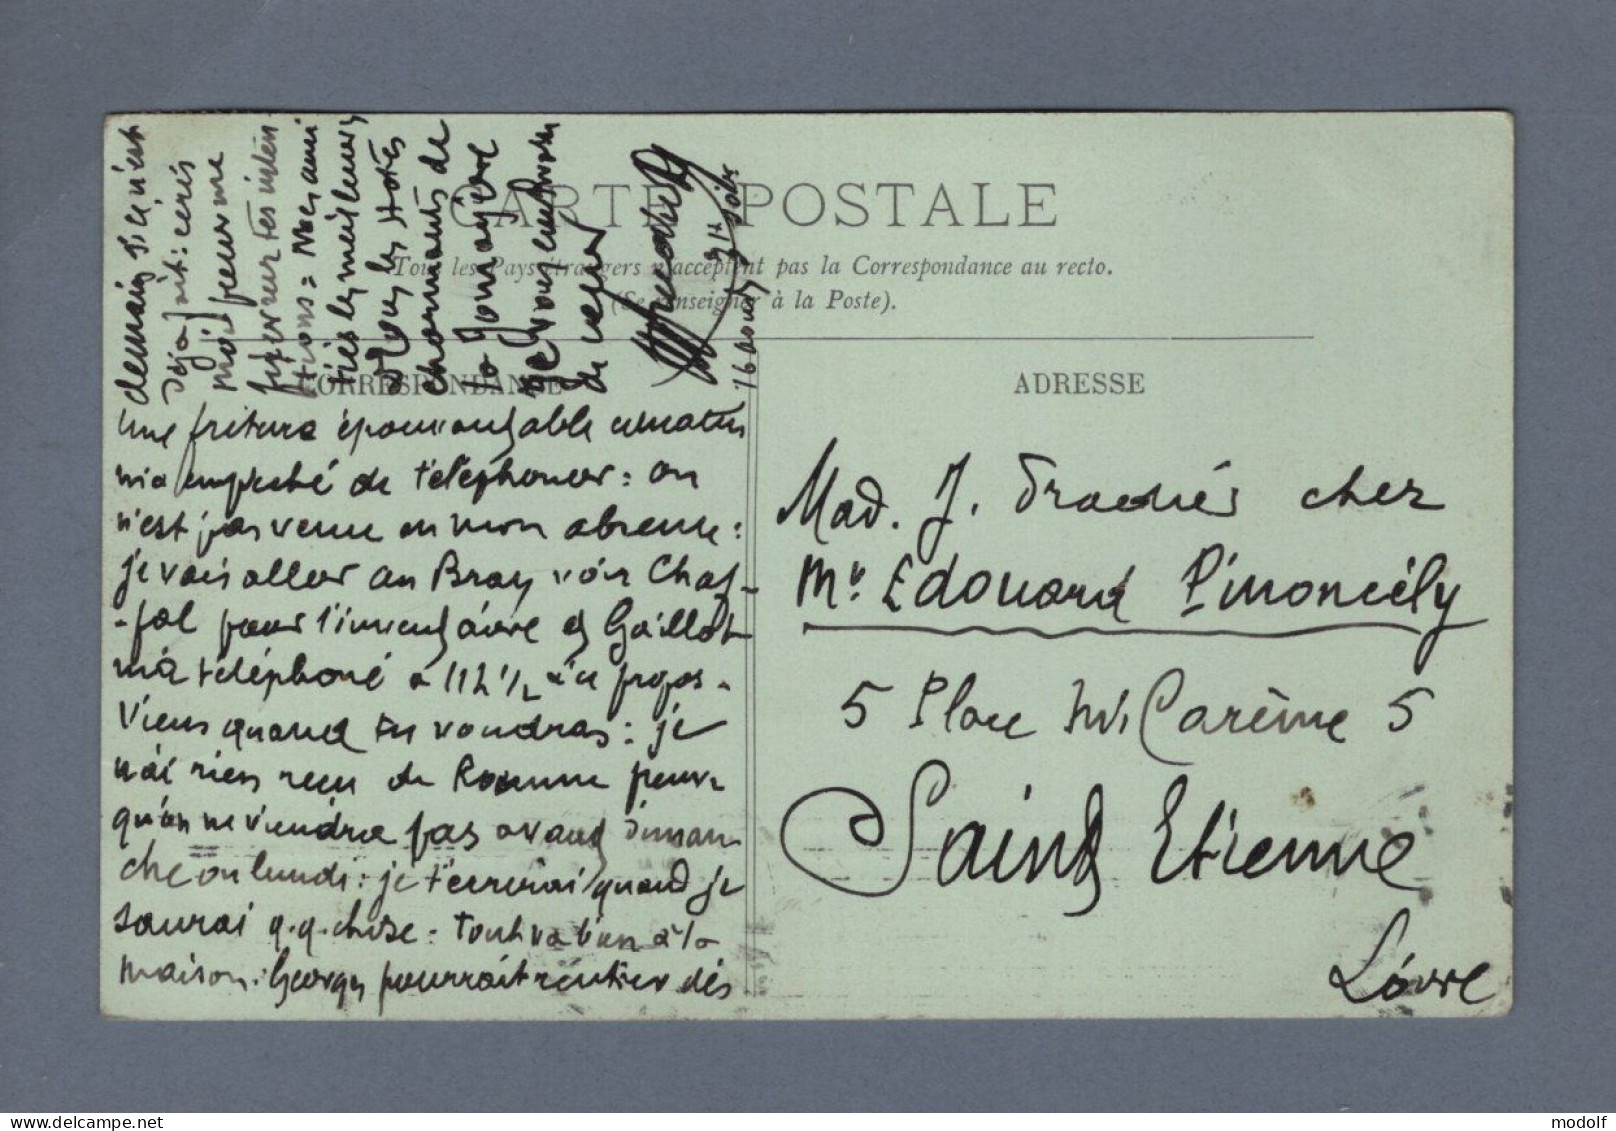 CARTE POSTALE
Tous les Pays étrangers n'acceptent pas la Correspondance au recto.
(Se renseigner à la Poste).
CORRESPONDANCE
ADRESSE
Une friture épouvantable ce matin
m'a empêché de téléphoner : on
n'est pas venu en mon absence :
je vais aller au Bray voir Chap-
-pal pour l'inventaire et Gaillot
m'a téléphoné à 11 h 1/2 à ce propos -
Viens quand tu voudras : je
n'ai rien reçu de Roanne peur
qu'on ne viendra pas avant diman
che ou lundi : je t'écrirai quand je
saurai q.q. chose - Tout va bien à la
maison : Georges pourrait rentrer dès
demain si ce n'est
déjà fait : écris
moi pour me
fixer sur tes inten-
tions = Mes ami
tiés les meilleures
à tous les hôtes
charmants de
16 août 9h soir
Mad. J. chez
Mr. Edouard Pimoncély
5 Place Mi Carème 5
Saint Etienne
Loire
modolf